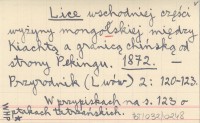 Lice wschodniej części
wyżyny mongolskiej między
Kiachtą a granicą chińską od
strony Pekingu. 1872. —
Przyrodnik (Lwów) 2: 120-123.
W przypiskach na s. 123 o
ptakach tatrzańskich.